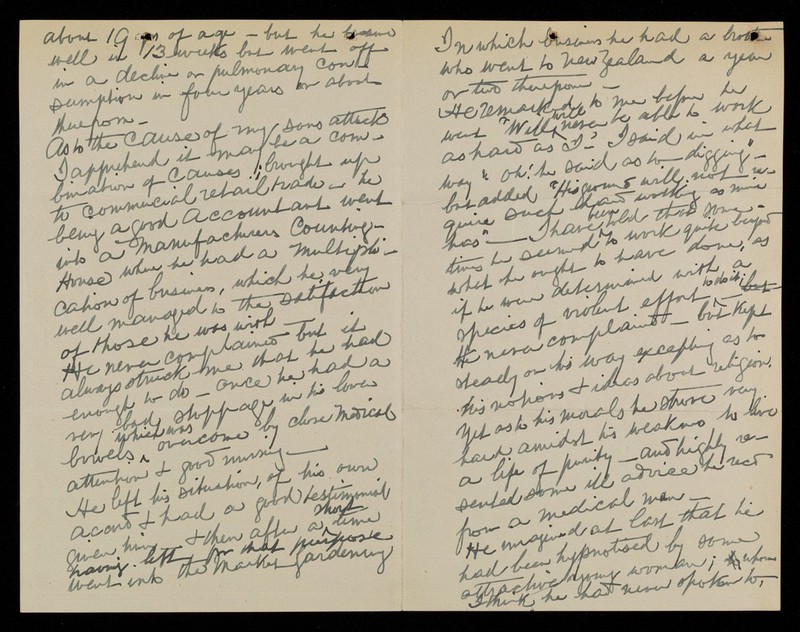 about 19 yrs of age – but he became
well in 13 weeks but went off
in a decline or pulmonary con
sumption in four years or about
thereupon –
As to the cause of my sons attack
I apprehend it may be a com-
bination of causes; brought up
to commercial retail trade – he
being a good accountant went
into a Manufacturers Counting-
House where he had a multipli-
cation of business, which he very
well managed to the satisfaction
of those he was with –
He never complained but it
always struck me that he had
enough to do – once he had a
very bad stoppage in his lower
bowels which was overcome by close medical
attention & good nursing –
He left his situation, of his own
accord & had a good testimonial
given him & then after a short time
having left for that purpose
went into the Market Gardening
In which business he had a brother
who went to New Zealand a year
or two thereupon –
He remarked to me before he
went "Will will never be able to work
as hard as I" – I said in what
way "oh! he said as to digging" –
but added "His ground will not re-
quire such hard working as mine
has" – I have been told that some-
times he seemed to work quite beyond
what he ought to have done, as
if he were determined with a
species of violent effort to do it; –
He never complained – but kept
steady on his way excepting as to
his notions & ideas about religion.
Yet as to his morals he strove very
hard amidst his weakness to live
a life of purity – and highly re-
sented some ill advice he recd
from a medical man –
He imagined at last that he
had been hypnotised by some
attractive young woman; whom
I think he had never spoken to,